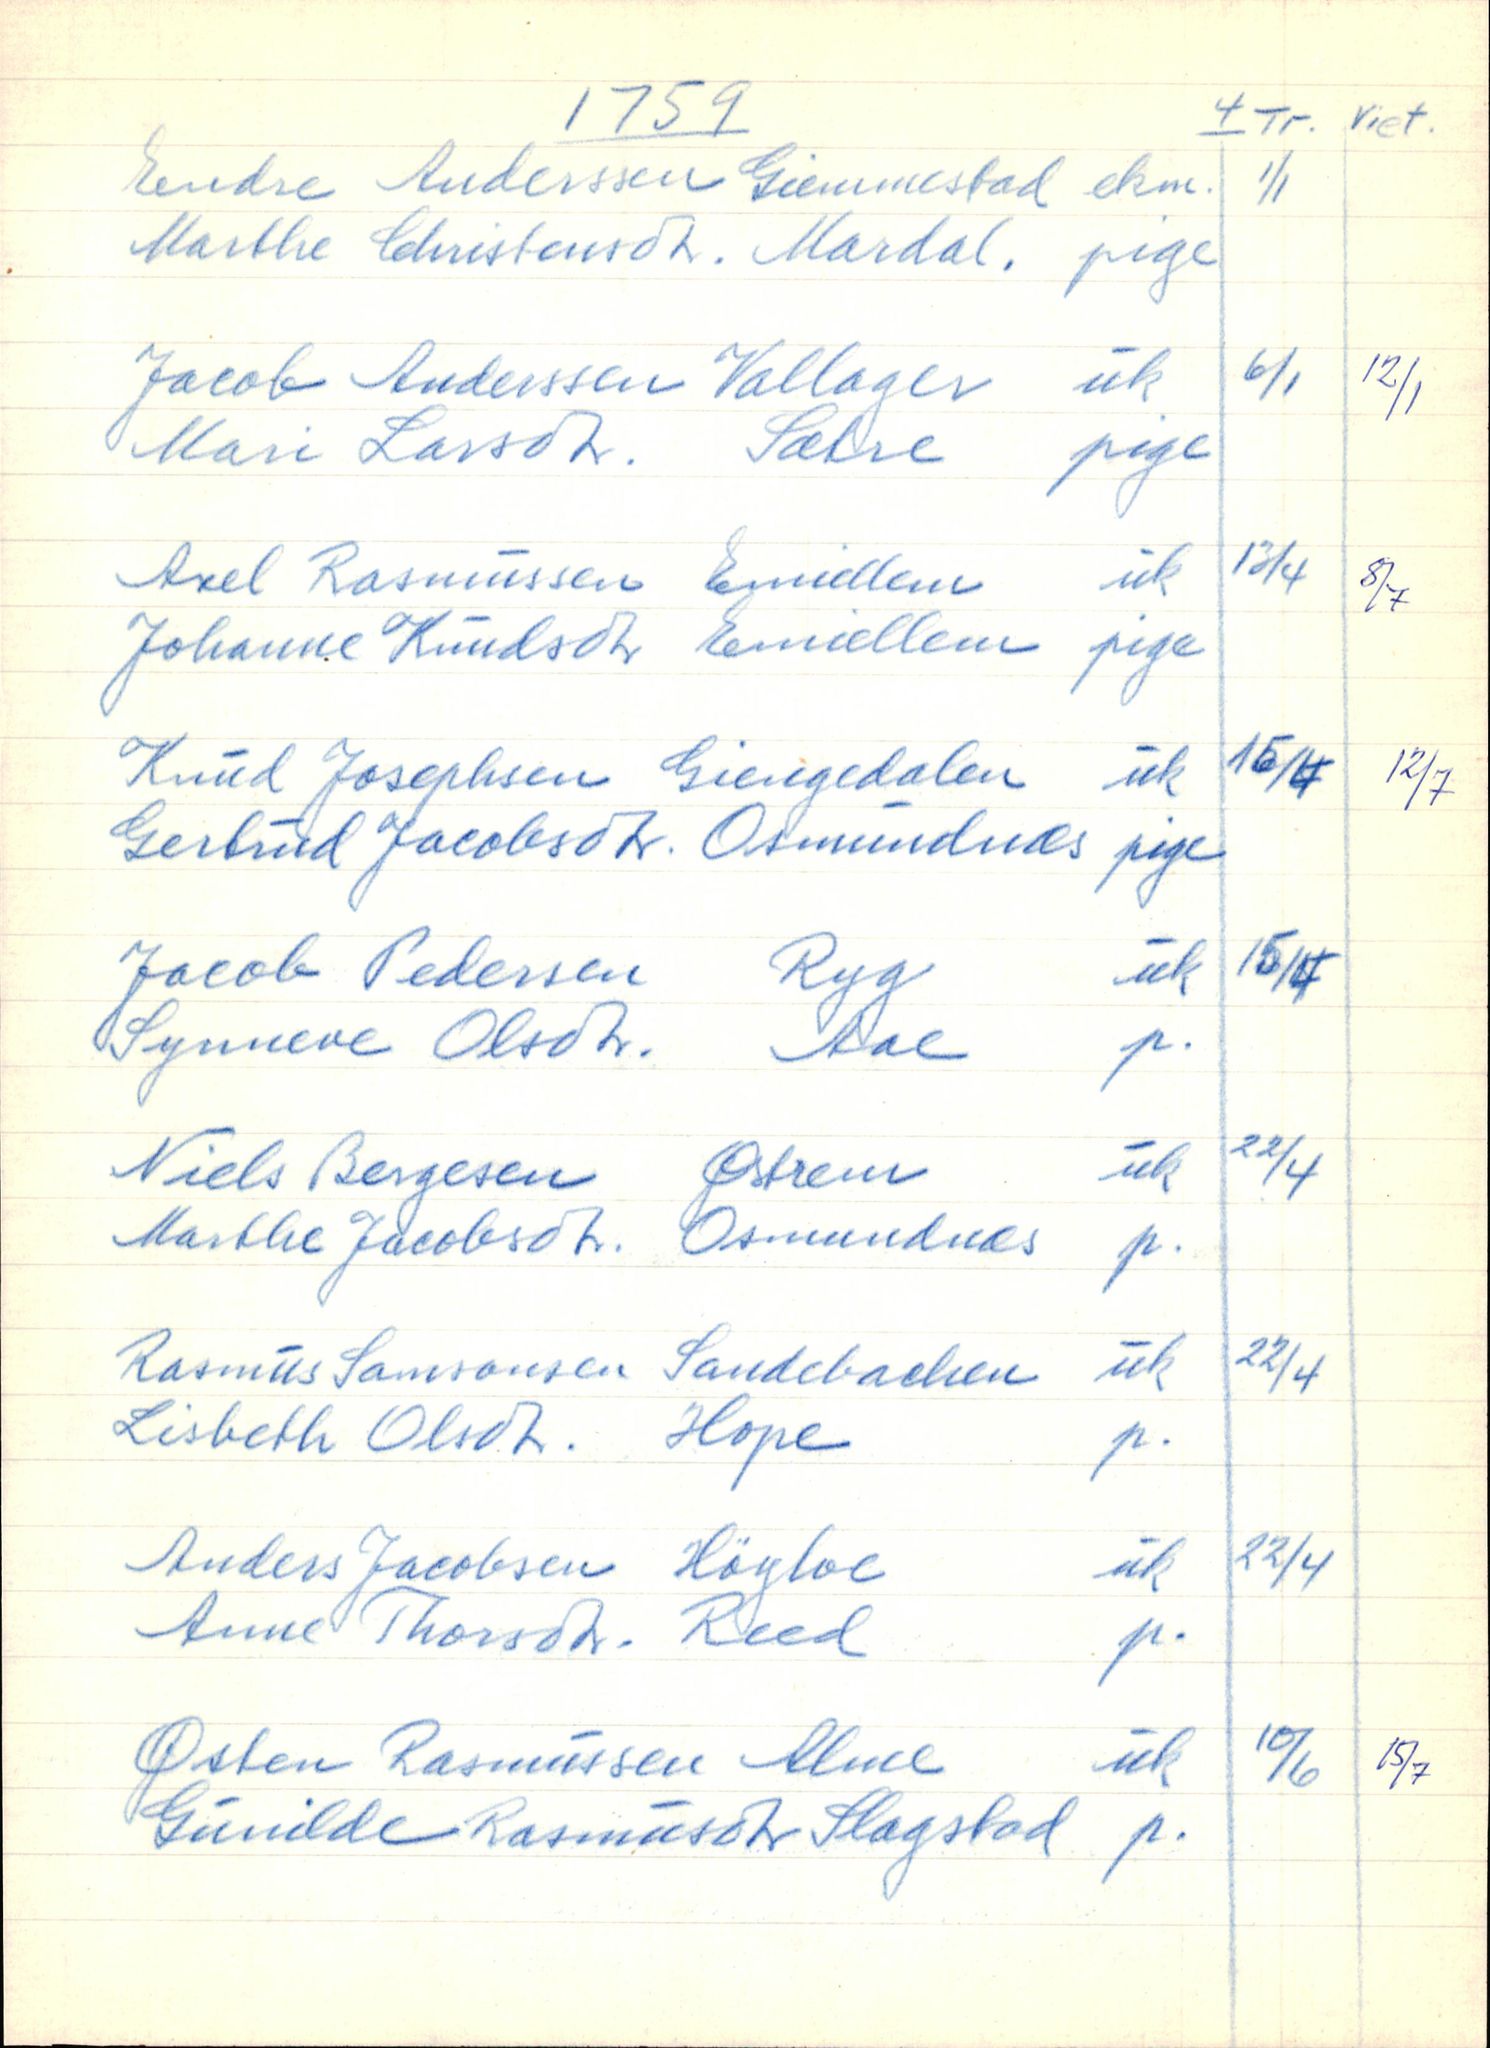 1759 4 Tr. Viet.
Endre Anderssen Giemmestad ekm. 1/1
Marthe Christensdtr. Mardal. pige
Jacob Anderssen Vallager ūk 6/1 12/1
Mari Larsdtr. Sætre pige
Axel Rasmūssen Emiellem ūk 13/4 8/7
Johanne Knūdsdtr Emiellem pige
Knūd Josephsen Giengedalen ūk 15/4 12/7
Gertrūd Jacobsdtr. Osmūndnæs pige
Jacob Pedersen Ryg ūk 15/4
Synneve Olsdtr. Aae p.
Niels Bergesen Østrem ūk 22/4
Marthe Jacobsdtr. Osmundnæs p.
Rasmūs Samsonsen Sandebachen ūk 22/4
Lisbeth Olsdtr. Hope p.
Anders Jacobsen Höyloe ūk 22/4
Anne Thorsdtr. Reed p.
Østen Rasmūssen Alme ūk 10/6 15/7
Gūnilde Rasmūsdtr Slagstad p.